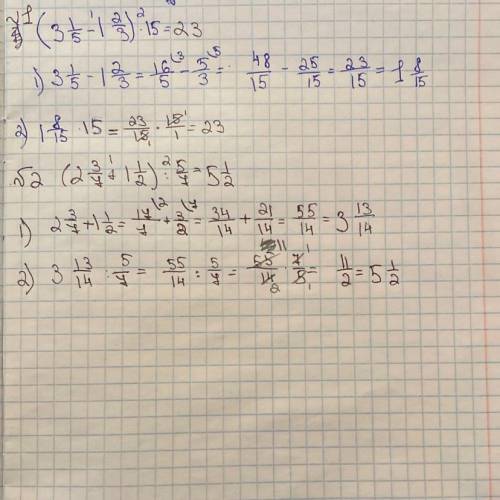 №1 (3 1/5 - 1 2/3) · 15 = 23
1) 3 1/5 - 1 2/3 = 16/5 - 5/3 = 48/15 - 25/15 = 23/15 = 1 8/15
2) 1 8/15 · 15 = 23/15 · 15/1 = 23
№2 (2 3/7 + 1 1/2) : 5/7 = 5 1/2
1) 2 3/7 + 1 1/2 = 17/7 + 3/2 = 34/14 + 21/14 = 55/14 = 3 13/14
2) 3 13/14 : 5/7 = 55/14 : 5/7 = 55/14 · 7/5 = 11/2 = 5 1/2